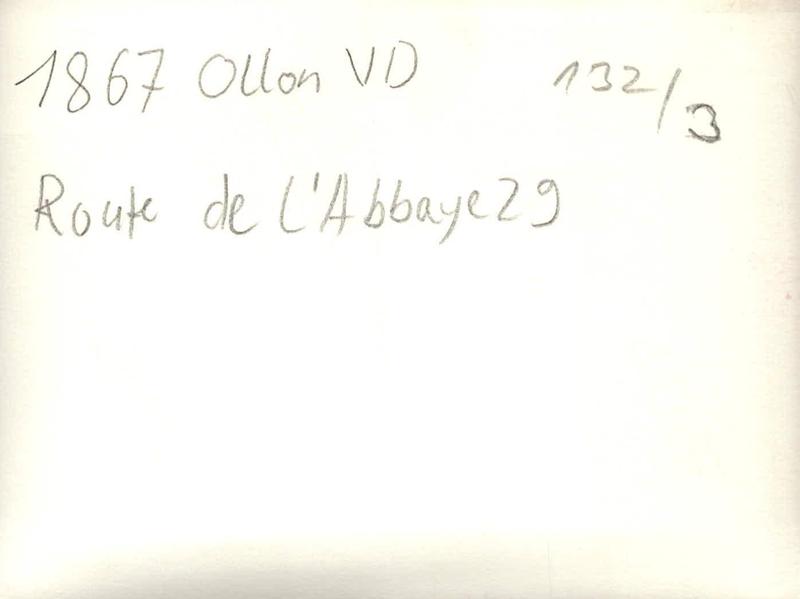 1867 Ollon VD 132/3
Route de l'Abbaye 29